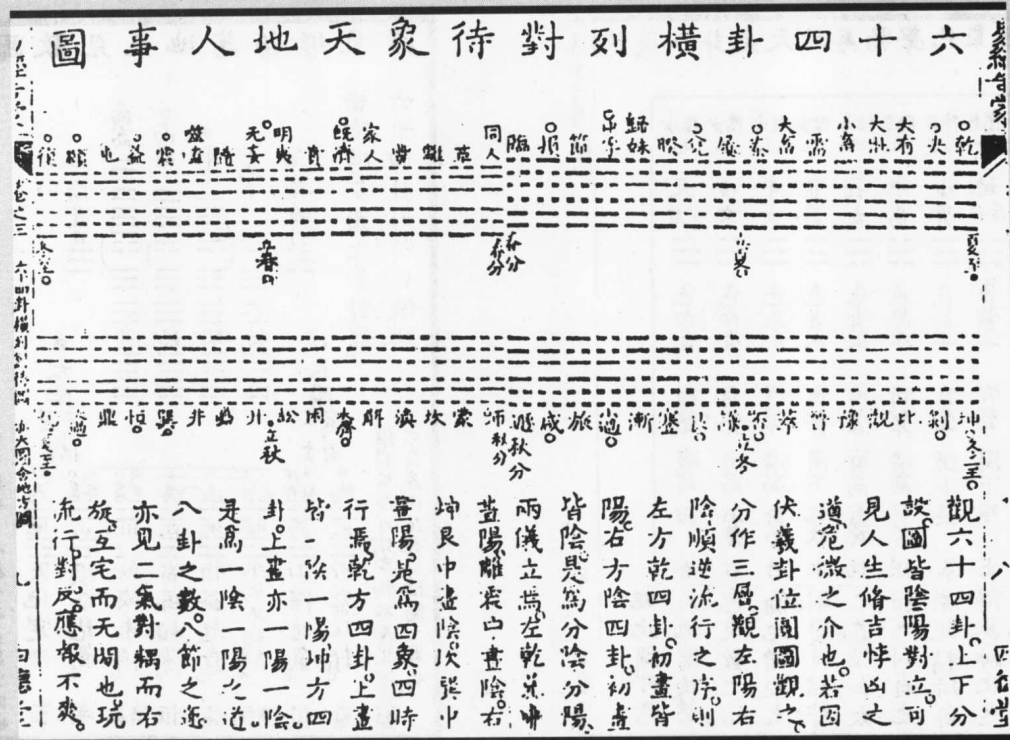 六十四卦橫列對待象天地人事圖
乾 夬 大有 大壯 小畜 需 大畜 泰 履 兌 睽 歸妹 中孚 節 損 臨
同人 革 離 豐 家人 旣濟 賁 明夷 无妄 隨 噬嗑 震 益 屯 頤 復
夏至 立夏 春分 春分 立春
坤 剝 比 觀 豫 晉 萃 否 謙 艮 蹇 漸 小過 旅 咸 遯
師 蒙 坎 渙 解 未濟 困 訟 升 蠱 井 巽 恒 鼎 大過
冬至 立冬 秋分 秋分 立秋 夏至
觀六十四卦上下分
設圖皆陰陽對立可
見人生脩吉悖凶之
道危微之介也若因
伏羲卦位圓圖觀之
分作三層觀左陽右
陰順逆流行之序則
左方乾四卦初畫皆
陽右方陰四卦初畫
皆陰是為分陰分陽
兩儀立焉左乾兌中
畫陽離震中畫陰右
坤艮中畫陰坎巽中
畫陽是為四象四時
行焉乾方四卦上畫
皆一陰一陽坤方四
卦上畫亦一陽一陰
是為一陰一陽之道
八卦之數八節之運
亦見二氣對耦而右
旋互宅而无間也玩
流行對反應報不爽
卷之三
六十四卦橫列對待圖